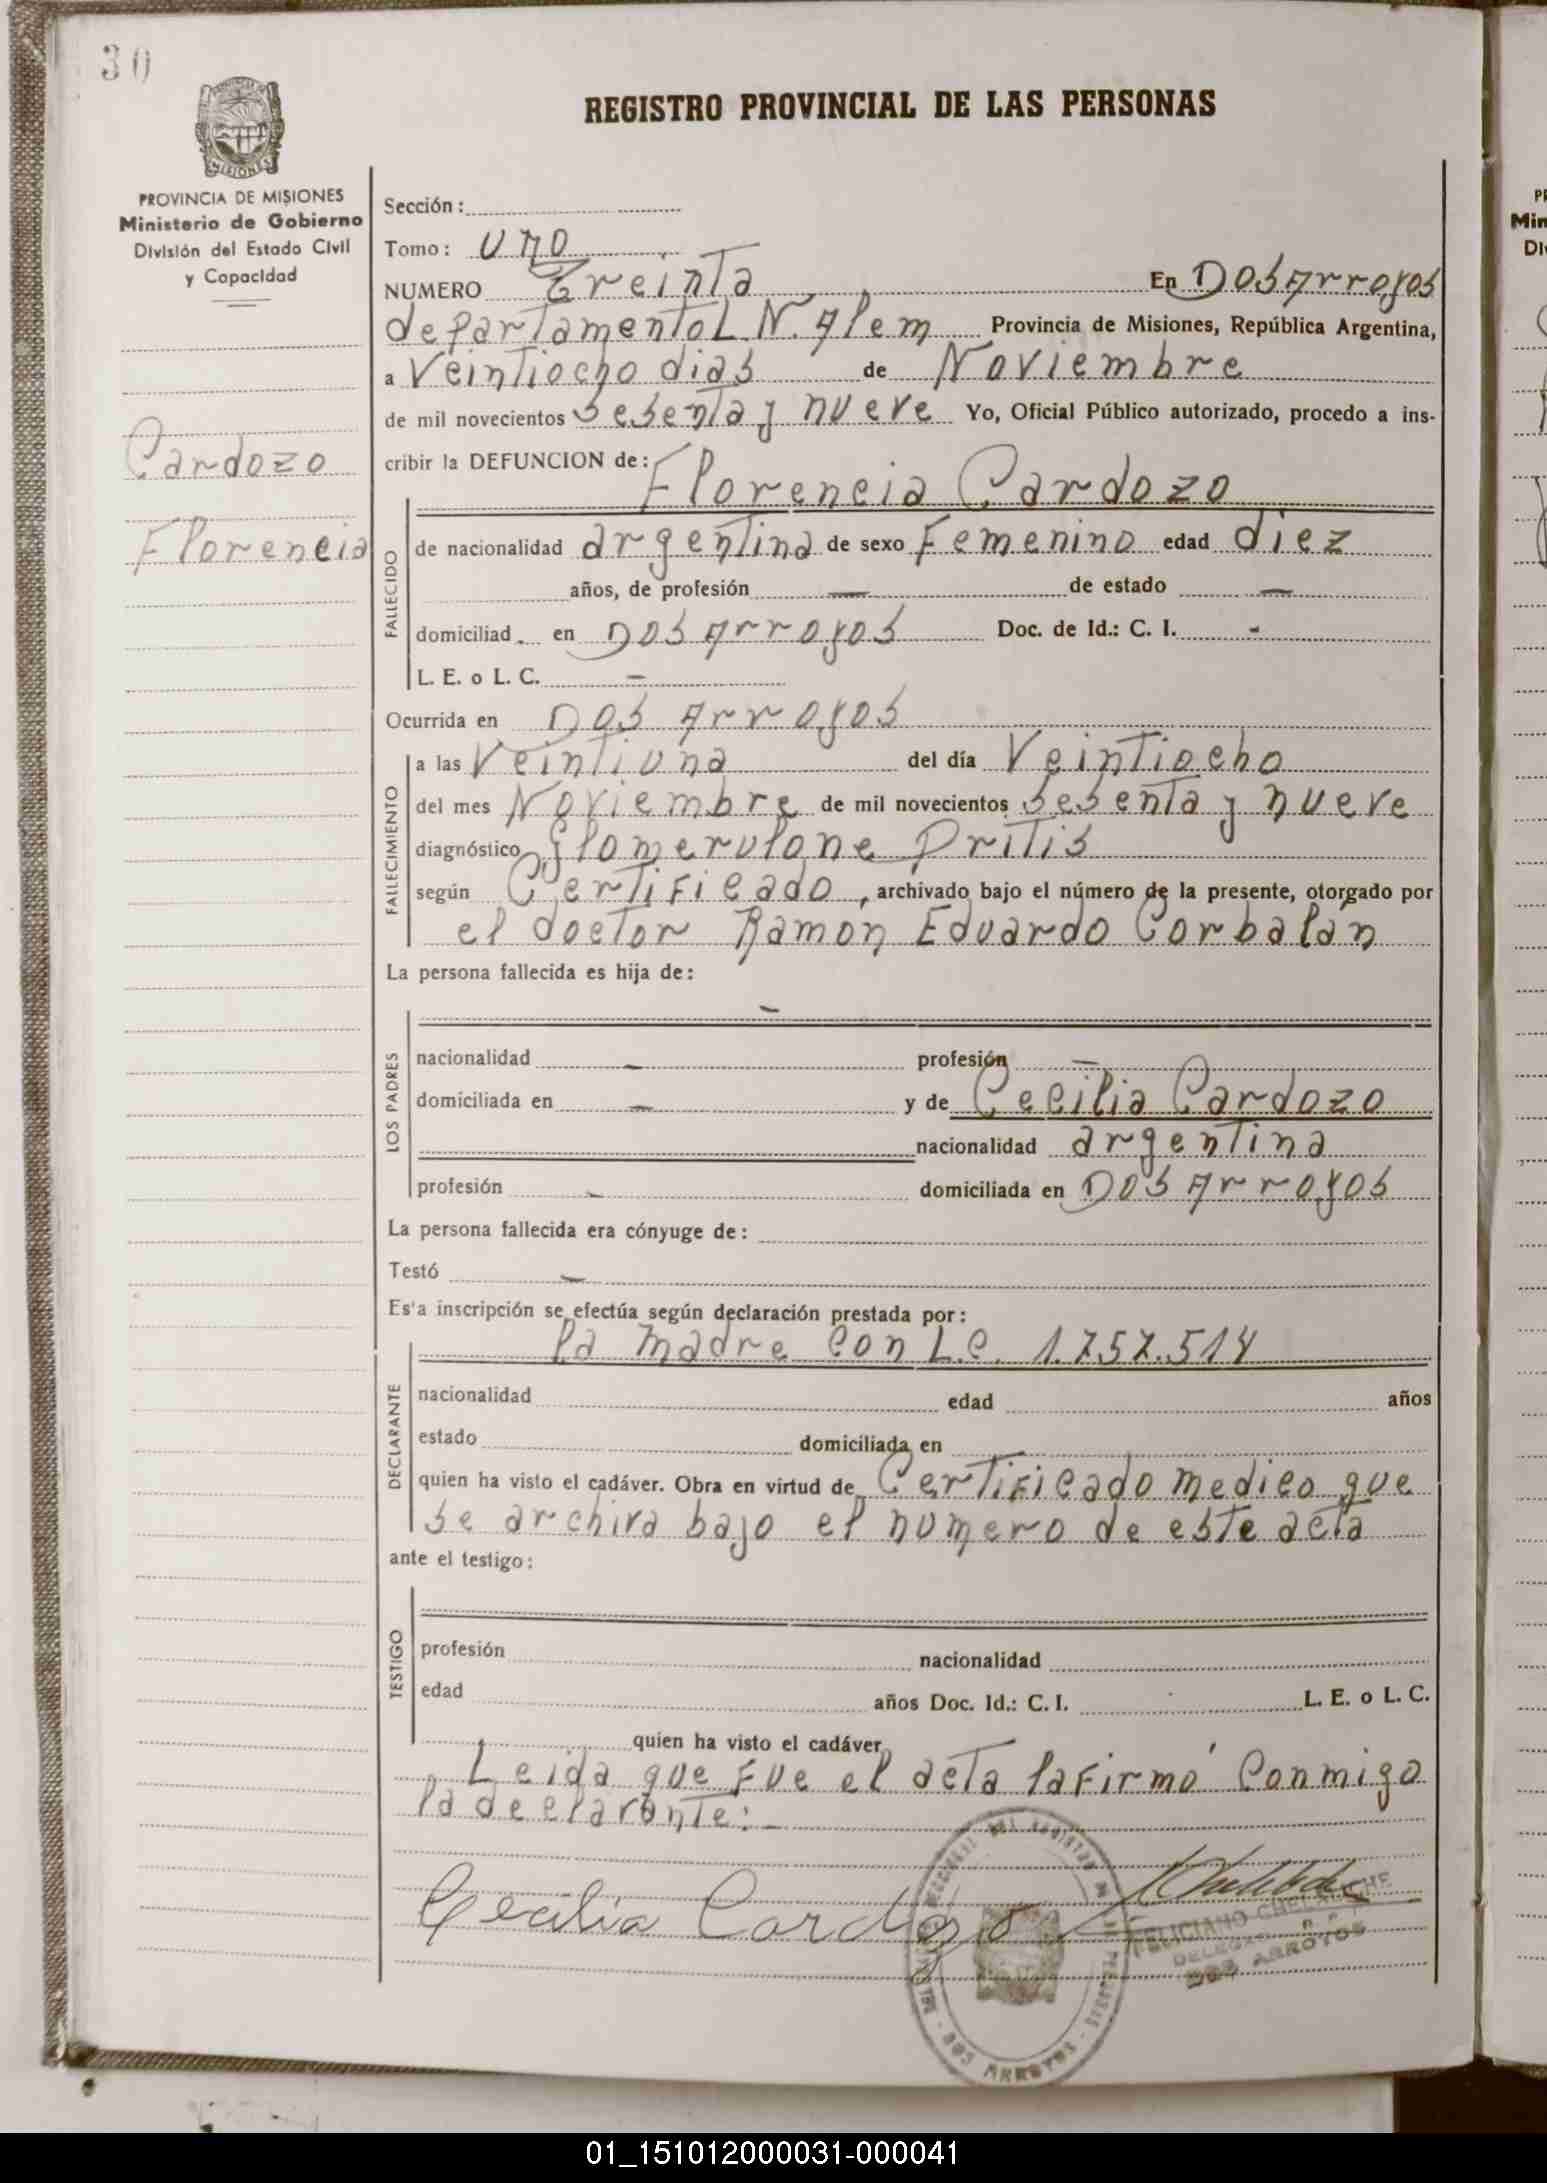 30
REGISTRO PROVINCIAL DE LAS PERSONAS
MISIONES
PROVINCIA DE MISIONES
Ministerio de Gobierno
División del Estado Civil
y Capacidad
Cardozo
Florencia
Sección:
Tomo: UNO
NUMERO Treinta En Dos Arroyos
departamento L. N. Alem Provincia de Misiones, República Argentina,
a Veintiocho dias de Noviembre
de mil novecientos sesenta y nueve Yo, Oficial Público autorizado, procedo a ins-
cribir la DEFUNCION de:
Florencia Cardozo
FALLECIDO
de nacionalidad argentina de sexo Femenino edad diez
años, de profesión — de estado —
domiciliad. en Dos Arroyos Doc. de Id.: C. I. -
L. E. o L. C. —
Ocurrida en Dos Arroyos
FALLECIMIENTO
a las Veintiuna del día Veintiocho
del mes Noviembre de mil novecientos sesenta y nueve
diagnóstico glomerulone Pritis
según Certificado, archivado bajo el número de la presente, otorgado por
el doctor Ramon Eduardo Corbalán
La persona fallecida es hija de:
—
LOS PADRES
nacionalidad — profesión —
domiciliada en — y de Cecilia Cardozo
nacionalidad argentina
profesión - domiciliada en Dos Arroyos
La persona fallecida era cónyuge de:
Testó —
Es'a inscripción se efectúa según declaración prestada por:
la madre con L.C. 1.757.514
DECLARANTE
nacionalidad edad años
estado domiciliada en
quien ha visto el cadáver. Obra en virtud de Certificado medico que
se archiva bajo el numero de este acta
ante el testigo:
TESTIGO
profesión nacionalidad
edad años Doc. Id.: C. I. L. E. o L. C.
quien ha visto el cadáver
Leida que fue el acta la firmó conmigo
la declarante:-
Cecilia Cardozo
FELICIANO
DOS ARROYOS
DOS ARROYOS
01_151012000031-000041